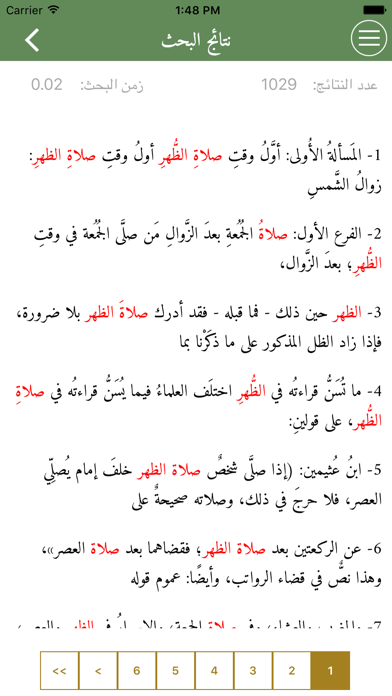 Carrier 1:48 PM
نتائج البحث
عدد النتائج: 1029 زمن البحث: 0.02
1- المَسألةُ الأُولى: أوَّلُ وقتِ صلاةِ الظُّهرِ أولُ وقتِ صلاةِ الظهرِ:
زوالُ الشَّمسِ
2- الفرع الأول: صلاةُ الجُمُعةِ بعدَ الزَّوالِ مَن صلَّى الجُمُعة في وقتِ
الظُّهرِ؛ بعدَ الزَّوال،
3- الظهر حين ذلك - فما قبله - فقد أدرك صلاةَ الظهر بلا ضرورة،
فإذا زاد الظل المذكور على ما ذكَرْنا بما
4- ما تُسَنُّ قراءتُه في الظُّهرِ اختلَف العلماءُ فيما يُسَنُّ قراءتُه في صلاةِ
الظُّهر، على قولينِ:
5- ابنُ عُثيمين: (إذا صلَّى شخصٌ صلاة الظهر خلفَ إمام يُصلِّي
العصر، فلا حرجَ في ذلك، وصلاته صحيحةٌ على
6- عن الركعتين بعد صلاة الظهر؛ فقضاهما بعد صلاة العصر»،
وهذا نصٌّ في قضاء الرواتب، وأيضًا: عموم قوله
<< < 6 5 4 3 2 1